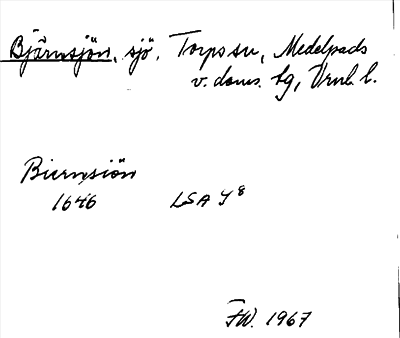 Björnsjön, sjö, Torps sn, Medelpads
v. doms. tg, Vrnl. l.
Biernsiön
1646 LSA Y8
FW. 1967